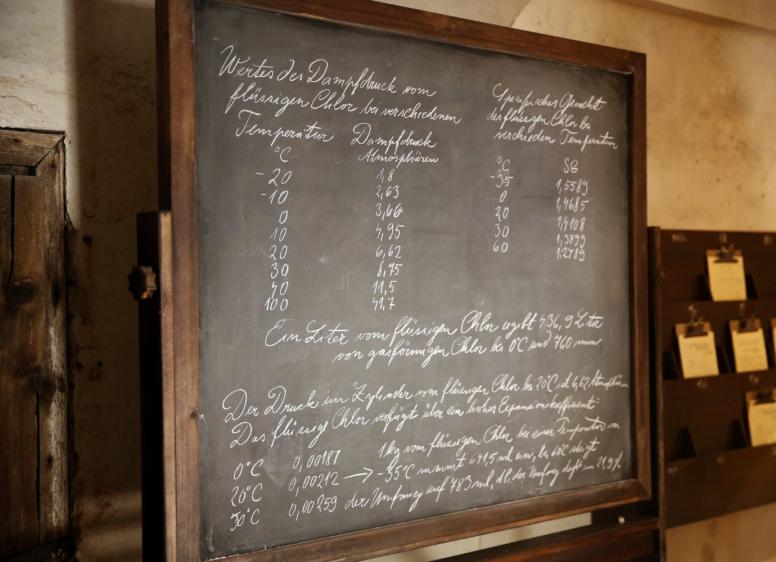 Wertes des Dampfdruck vom
flüssigen Chlor bei verschiedenen
Temperatur Dampfdruck
°C Atmosphären
-20 1,8
-10 2,63
0 3,66
10 4,95
20 6,62
30 8,75
40 11,5
100 41,7
Spezifisches Gewicht
des flüssigen Chlor bei
verschieden Temperatur
°C SG
-35 1,5589
0 1,4685
20 1,4108
30 1,3799
60 1,2789
Ein Liter vom flüssigen Chlor ergibt 436,9 Liter
von gasförmigen Chlor bei 0°C und 760 mm
Der Druck im Zylinder vom flüssigen Chlor bei 20°C ist 6,62 Atmosphären
Das flüssige Chlor verfügt über ein hohes Expansionskoeffizient:
0°C 0,00187
20°C 0,00212 →
30°C 0,00259
1 kg vom flüssigen Chlor bei einer Temperatur von
-35°C nimmt 641,5 ml ein, bei 60°C steigt
der Umfang auf 783 ml, d.h. der Umfang um 21,9%